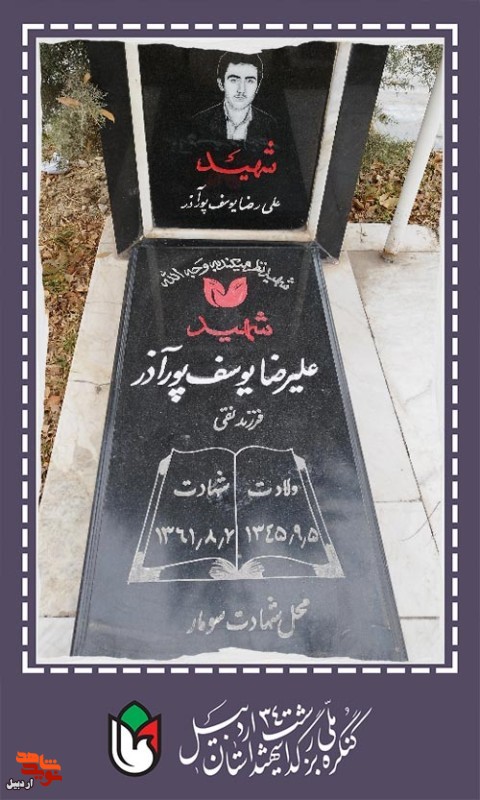 شهید
علی رضا یوسف پور آذر
شهید نظر میکند به وجه الله
شهید
علیرضا یوسف پور آذر
فرزند نقی
ولادت شهادت
۱۳۴۵٫۹٫۵ ۱۳۶۱٫۸٫۲
محل شهادت سومار
کنگره ملی بزرگداشت ۳۴۰۰ شهید استان اردبیل
نوید شاهد
اردبیل